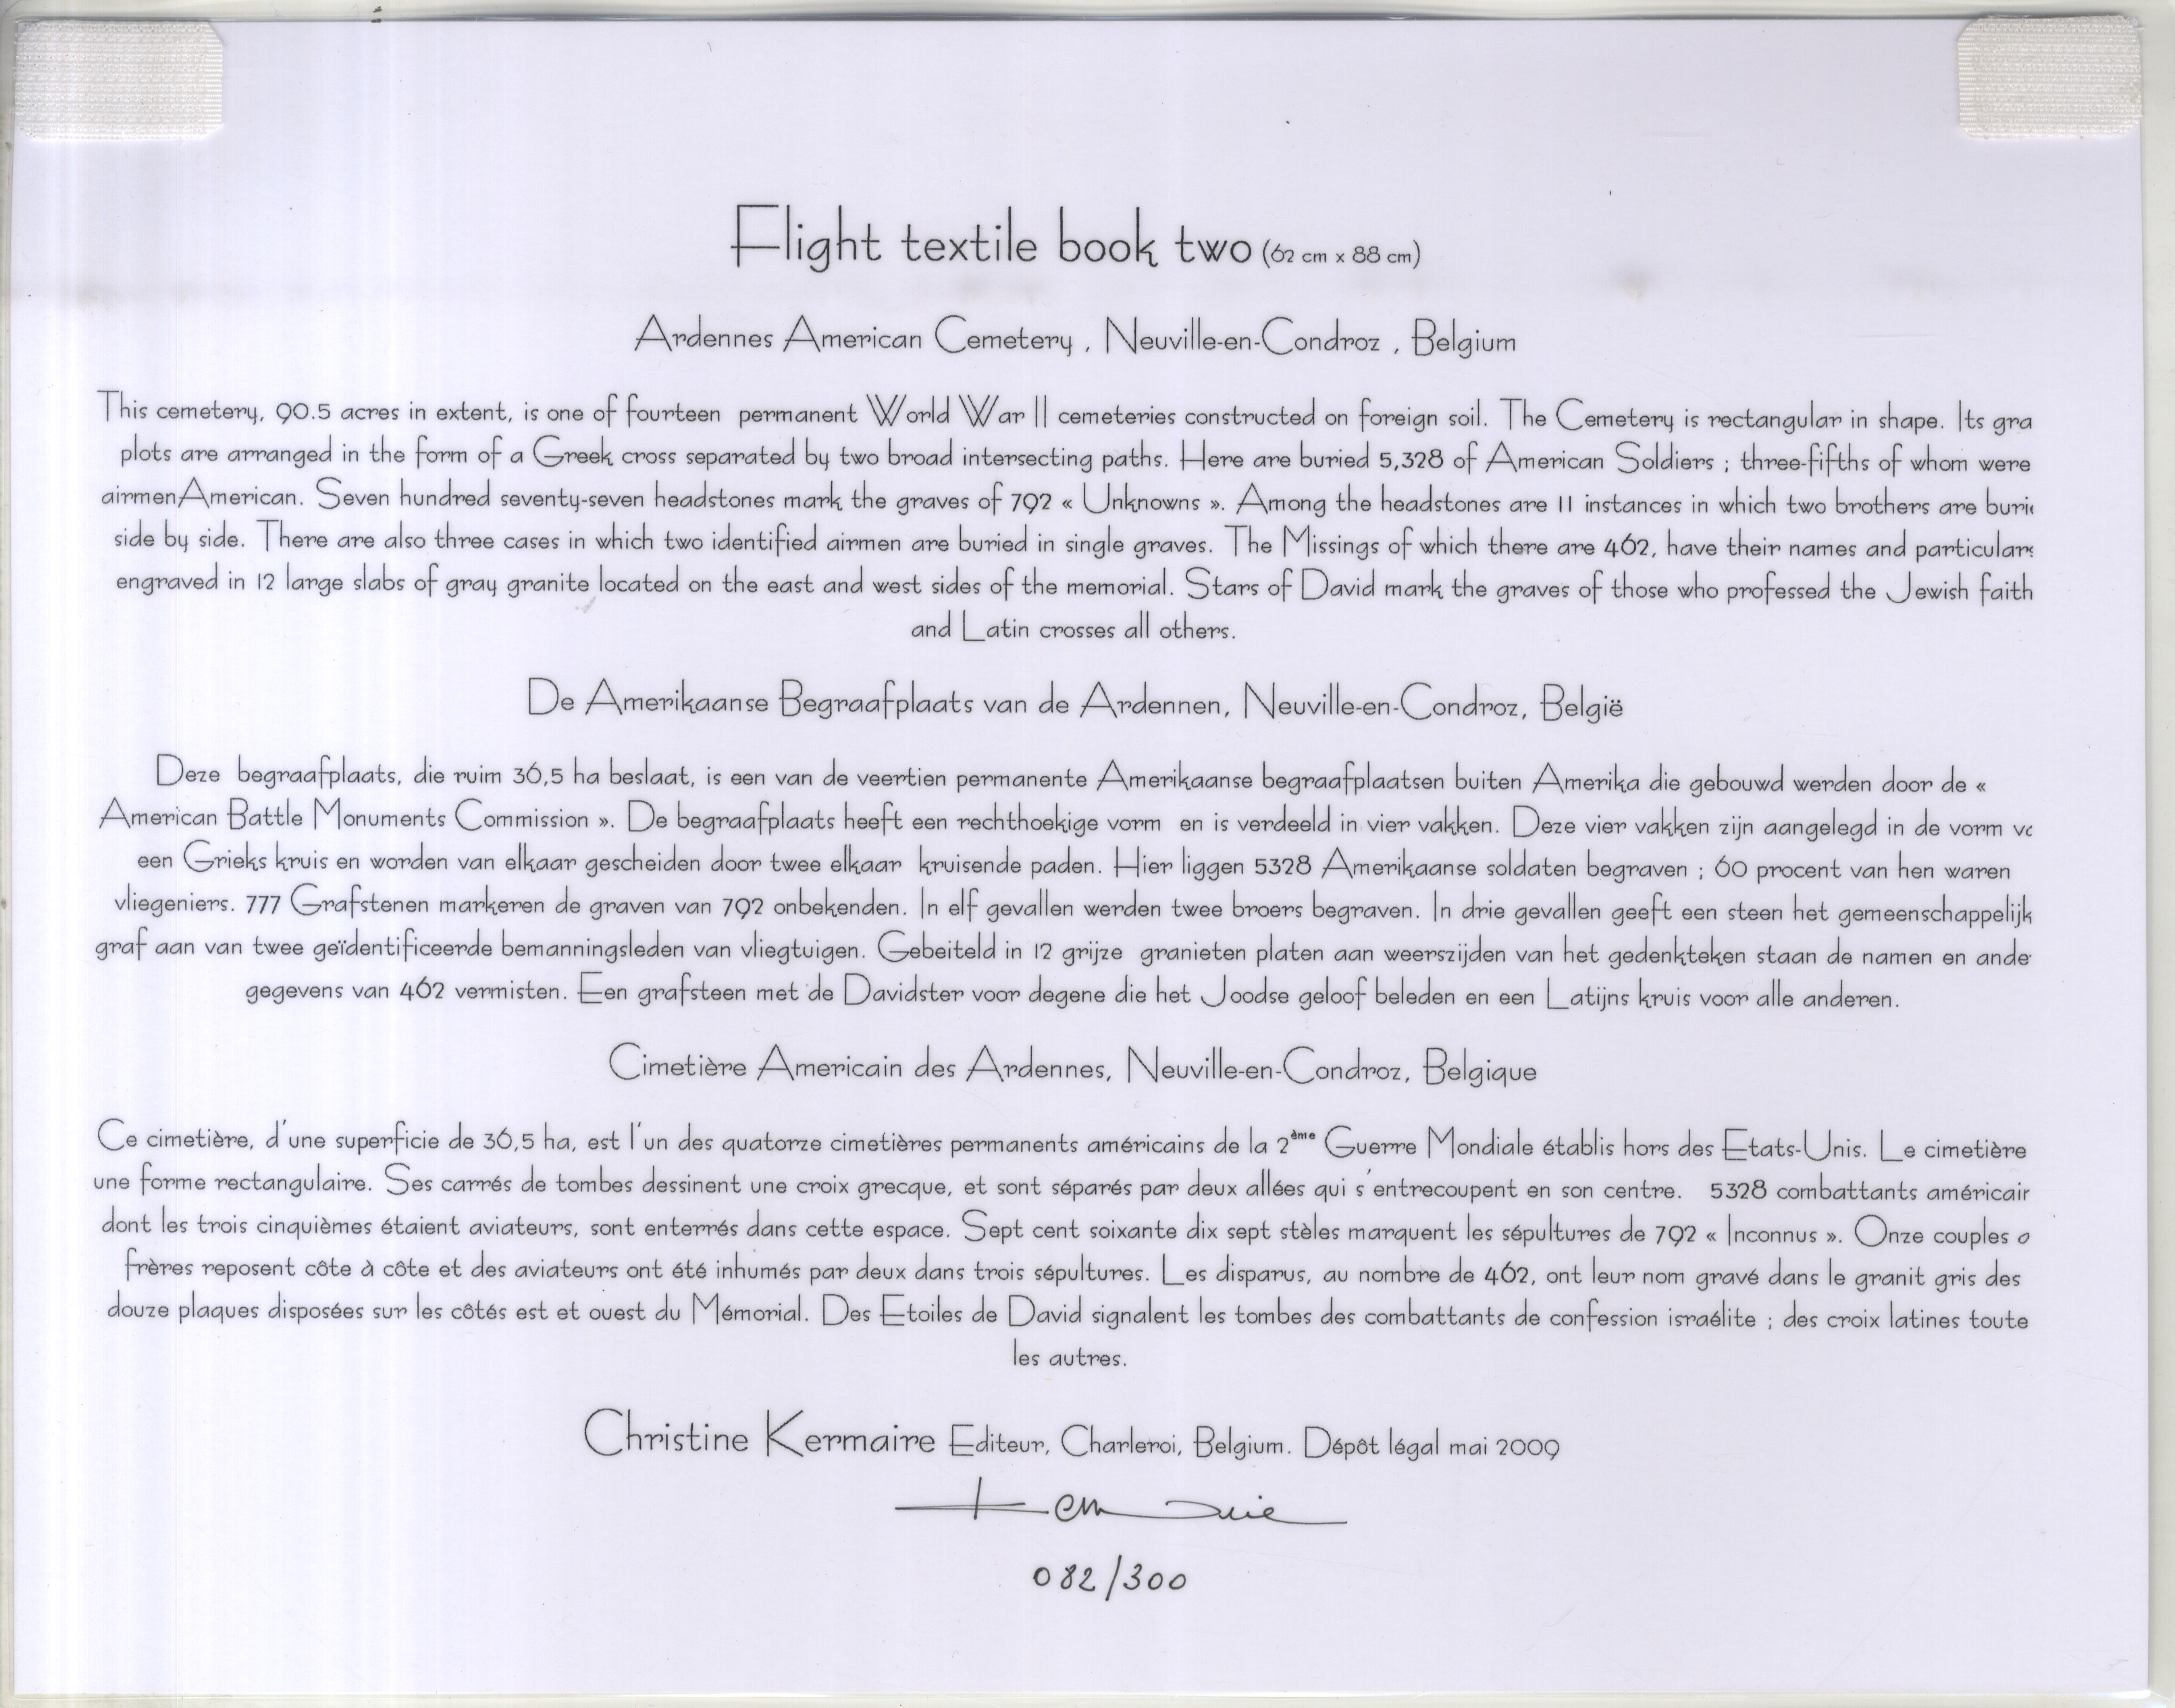 Flight textile book two (62 cm x 88 cm)
Ardennes American Cemetery , Neuville-en-Condroz , Belgium
This cemetery, 90.5 acres in extent, is one of fourteen permanent World War II cemeteries constructed on foreign soil. The Cemetery is rectangular in shape. Its gra
plots are arranged in the form of a Greek cross separated by two broad intersecting paths. Here are buried 5,328 of American Soldiers ; three-fifths of whom were
airmenAmerican. Seven hundred seventy-seven headstones mark the graves of 792 « Unknowns ». Among the headstones are 11 instances in which two brothers are burie
side by side. There are also three cases in which two identified airmen are buried in single graves. The Missings of which there are 462, have their names and particulars
engraved in 12 large slabs of gray granite located on the east and west sides of the memorial. Stars of David mark the graves of those who professed the Jewish faith
and Latin crosses all others.
De Amerikaanse Begraafplaats van de Ardennen, Neuville-en-Condroz, België
Deze begraafplaats, die ruim 36,5 ha beslaat, is een van de veertien permanente Amerikaanse begraafplaatsen buiten Amerika die gebouwd werden door de «
American Battle Monuments Commission ». De begraafplaats heeft een rechthoekige vorm en is verdeeld in vier vakken. Deze vier vakken zijn aangelegd in de vorm va
een Grieks kruis en worden van elkaar gescheiden door twee elkaar kruisende paden. Hier liggen 5328 Amerikaanse soldaten begraven ; 60 procent van hen waren
vliegeniers. 777 Grafstenen markeren de graven van 792 onbekenden. In elf gevallen werden twee broers begraven. In drie gevallen geeft een steen het gemeenschappelijk
graf aan van twee geïdentificeerde bemanningsleden van vliegtuigen. Gebeiteld in 12 grijze granieten platen aan weerszijden van het gedenkteken staan de namen en ande
gegevens van 462 vermisten. Een grafsteen met de Davidster voor degene die het Joodse geloof beleden en een Latijns kruis voor alle anderen.
Cimetière Americain des Ardennes, Neuville-en-Condroz, Belgique
Ce cimetière, d'une superficie de 36,5 ha, est l'un des quatorze cimetières permanents américains de la 2ème Guerre Mondiale établis hors des Etats-Unis. Le cimetière
une forme rectangulaire. Ses carrés de tombes dessinent une croix grecque, et sont séparés par deux allées qui s'entrecoupent en son centre. 5328 combattants américain
dont les trois cinquièmes étaient aviateurs, sont enterrés dans cette espace. Sept cent soixante dix sept stèles marquent les sépultures de 792 « Inconnus ». Onze couples
frères reposent côte à côte et des aviateurs ont été inhumés par deux dans trois sépultures. Les disparus, au nombre de 462, ont leur nom gravé dans le granit gris des
douze plaques disposées sur les côtés est et ouest du Mémorial. Des Etoiles de David signalent les tombes des combattants de confession israélite ; des croix latines toute
les autres.
Christine Kermaire Editeur, Charleroi, Belgium. Dépôt légal mai 2009
082/300